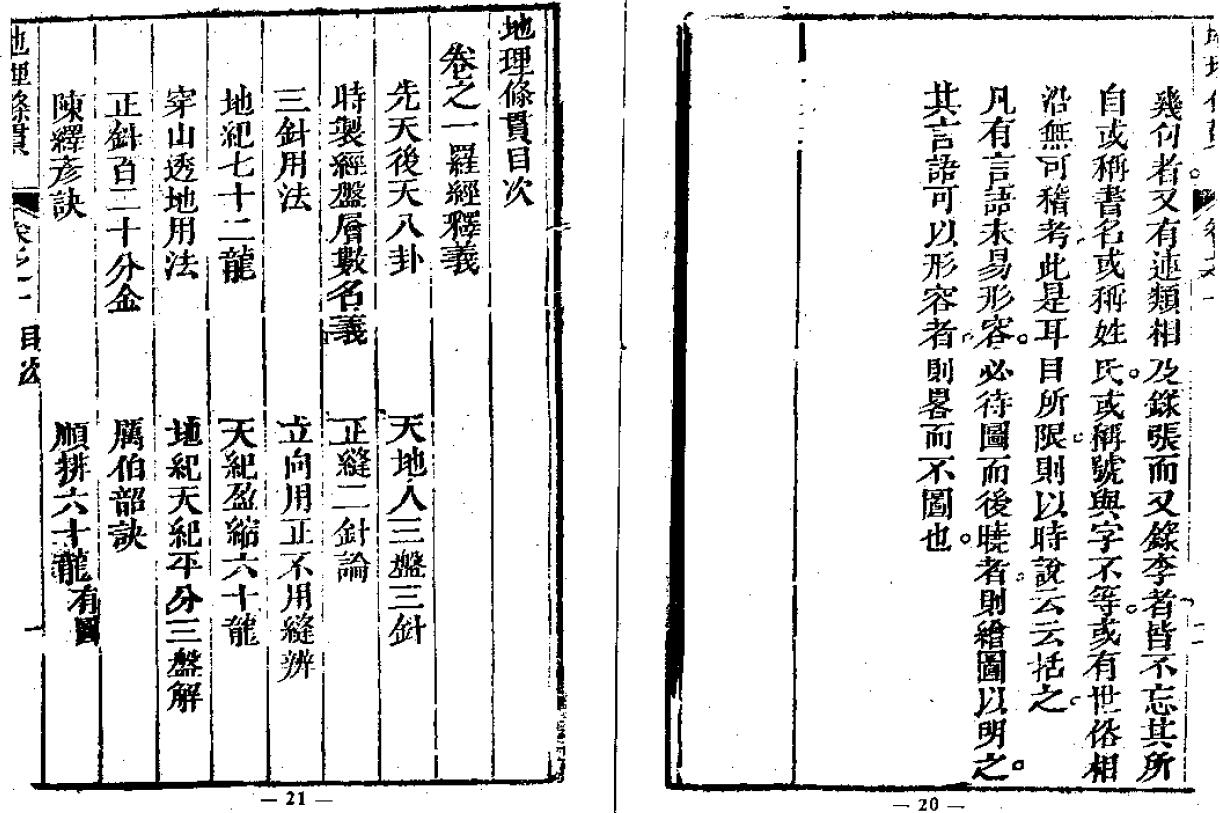 幾何者又有連類相及錄張而又錄李者皆不忘其所
自或稱書名或稱姓氏或稱號與字不等或有世俗相
沿無可稽考此是耳目所限則以時說云云括之
凡有言語未易形容必待圖而後曉者則繪圖以明之
其言語可以形容者則畧而不圖也
— 20 —
地理條貫目次
卷之一羅經釋義
先天後天八卦 天地人三盤三針
時製經盤層數名義 正縫二針論
三針用法 立向用正不用縫辨
地紀七十二龍 天紀盈縮六十龍
穿山透地用法 地紀天紀平分三盤解
正針百二十分金 厲伯韶訣
陳繹彥訣 順排六十龍有圖
地理條貫 卷之一 目次
— 21 —